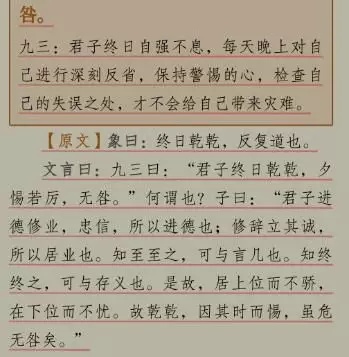 咎。
九三：君子终日自强不息，每天晚上对自
己进行深刻反省，保持警惕的心，检查自
己的失误之处，才不会给自己带来灾难。
【原文】象曰：终日乾乾，反复道也。
文言曰：九三曰：“君子终日乾乾，夕
惕若厉，无咎。”何谓也？子曰：“君子进
德修业，忠信，所以进德也；修辞立其诚，
所以居业也。知至至之，可与言几也。知终
终之，可与存义也。是故，居上位而不骄，
在下位而不忧。故乾乾，因其时而惕，虽危
无咎矣。”